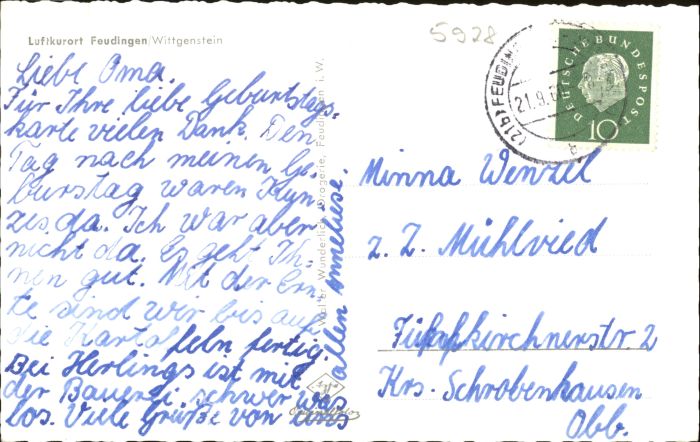 Luftkurort Feudingen/Wittgenstein
5928
Liebe Oma.
Für Ihre liebe Geburtstags-
karte vielen Dank. Den
Tag nach meinen Ge-
burstag waren Kyn
zes da. Ich war aber
nicht da. Es geht Ih-
nen gut. Mit der Ern-
te sind wir bis auf
die Kartoffeln fertig.
Bei Herlings ist mit
der Bauerei schwer was
los. Viele Grüße von uns
allen Anneliese.
Walter Wunderlich, Drogerie, Feudingen i. W.
(21b) FEUDINGEN
21.9.6
DEUTSCHE BUNDESPOST
10
Minna Wenzel
z. Z. Mühlried
kirchnerstr. 2
Krs. Schrobenhausen
Obb.